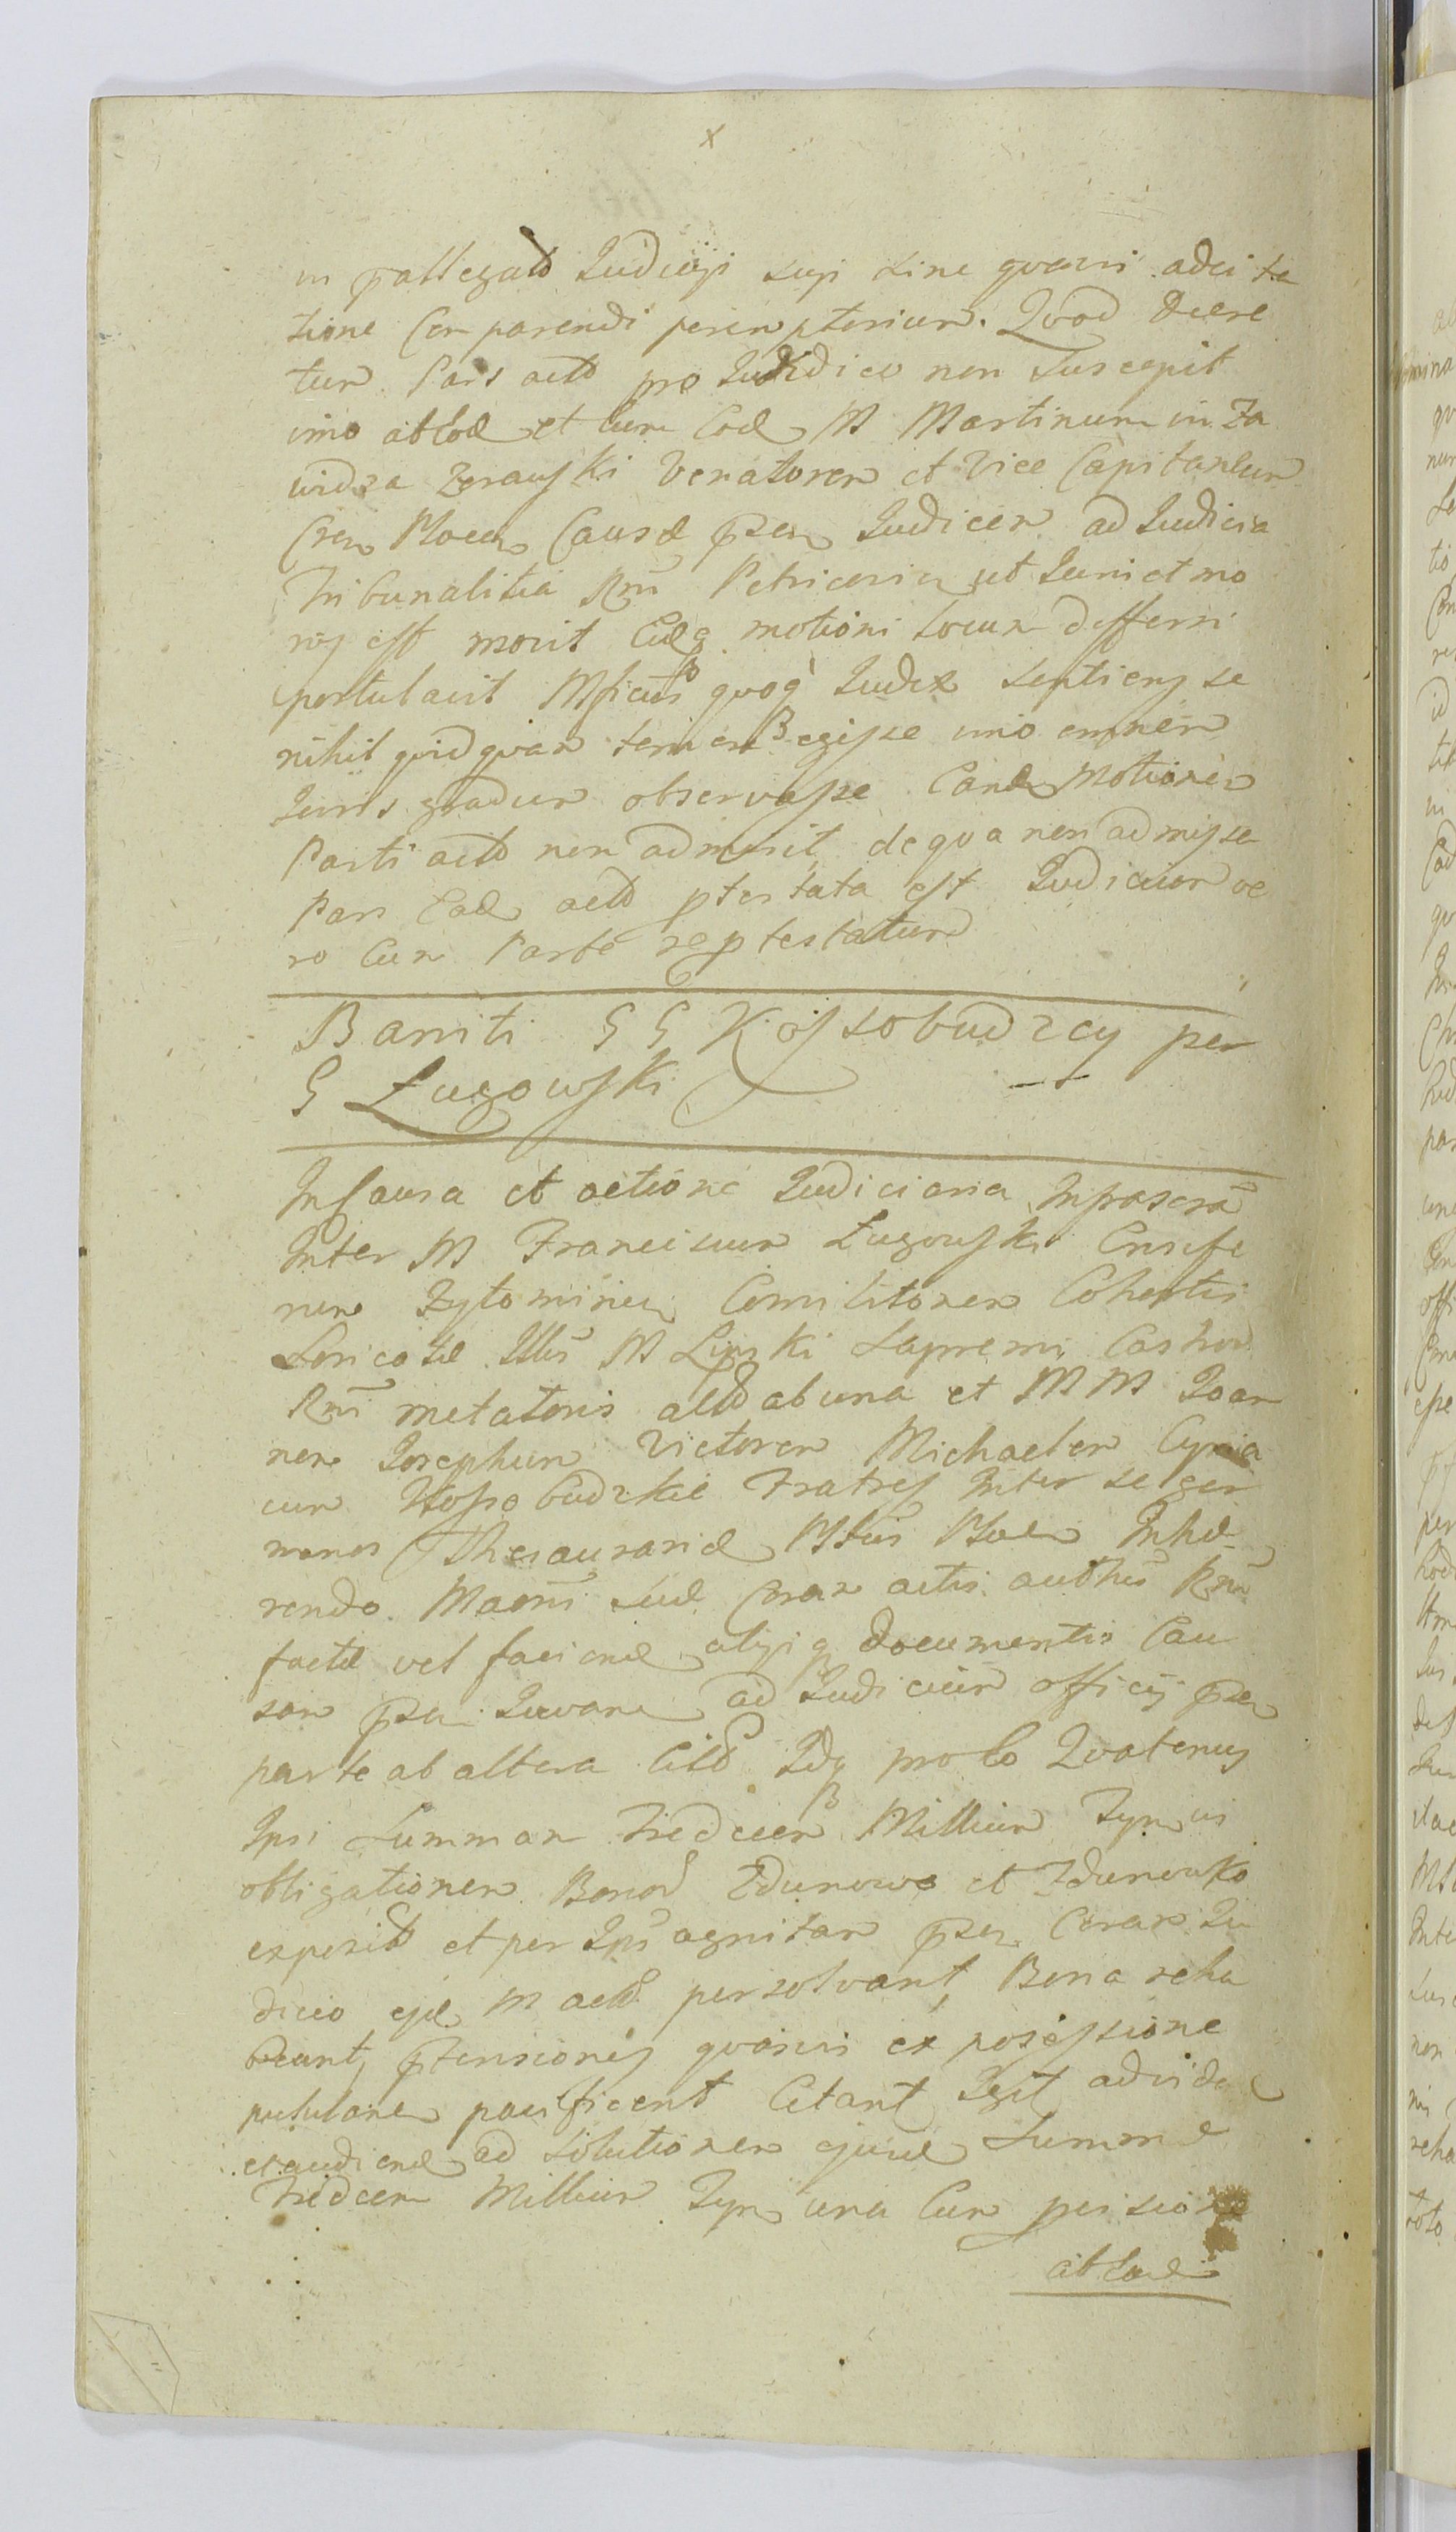 x
in pallegato Judicii sui sine quavis adcita
tione Comparendi peremptorium. Quod Decre
tum Pars acto pro Juridico non Suscepit
imo ab Eod et Cum Eod M Martinum in Za
widza Zerawski Venatorem et Vice Capitaneum
Crem Plocen Causæ psen Judicem ad Judicia
Tribunalitia Rni Petricovien ut Juris et mo
ris est movit Eidq motioni Locum defferri
postulavit Mficus quoq Judex sentiens se
nihil quidquam temere egisse imo omnem
Juris gradum observasse Eand Motionem
Parti acto non admisit, de qua non admissa
Pars Ead acto ptestata est Judicium ve
ro Cum Parte reptestatum
Baniti G G Kossobudzcy per
G Ługowski
In Causa et actione Judiciaria Infrascra
Inter M Franciscum Ługowski Ensife
rum Zytominien Comilitonem Cohortis
Loricatæ Illis M Lipski Supremi Castror
Rni metatoris acto ab una et M M Joan
nem Josephum Victorem Michaelem Cyria
cum Kossobudzkie Fratres Inter se ger
manos Thesaurarid Plocen Inhæ
rendo Maoni suæ Coram actis authis Rni
factæ vel faciend aliisq documentis Cau
sam psen Juvan ad Judicium officij psen
parte ab altera Citto Idq pro Eo Quatenus
Ipsi Summam Tredecem Millium Fpn vi
obligationem Bonor Zdunowo et Zdunowko
expositto et per Ipsos agnitam psen Coram Ju
dicio ejd M acto persolvant, Bona reha
beant, ptensiones quasvis ex possessione
pullulan pacificent Citant Igit ad vidend
et audiend ad Solutionem ejusd Summæ
Tredecem Millium Fpn una Cum
ab Ead